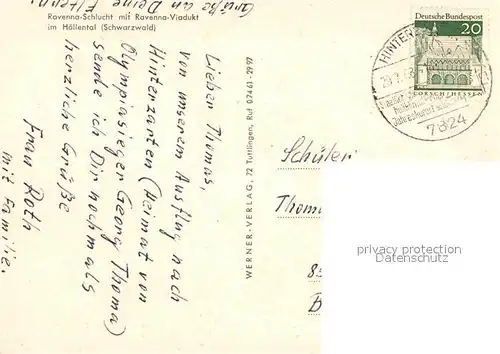 Grüße an Deine Eltern!
Ravenna-Schlucht mit Ravenna-Viadukt
im Höllental (Schwarzwald)
Lieber Thomas,
von unserem Ausflug nach
Hinterzarten (Heimat von
Olympiasieger Georg Thoma)
sende ich Dir nochmals
herzliche Grüße
Frau Roth
mit Familie.
WERNER-VERLAG, 72 Tuttlingen, Ruf 07461-2997
Deutsche Bundespost
20
LORSCH/HESSEN
HINTER
7824
Schüler
Thoma
privacy protection
Datenschutz